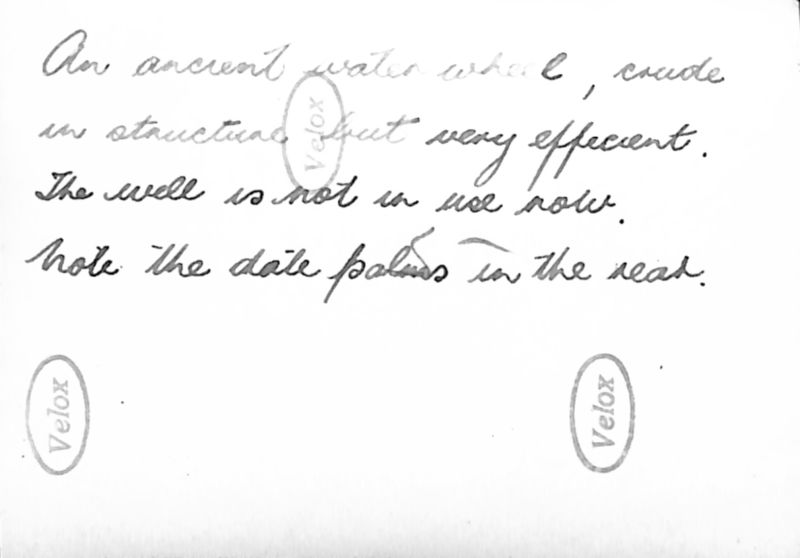 An ancient water wheel, crude
in structure but very effecient.
The well is not in use now.
Note the date palms in the rear.
Velox
Velox
Velox